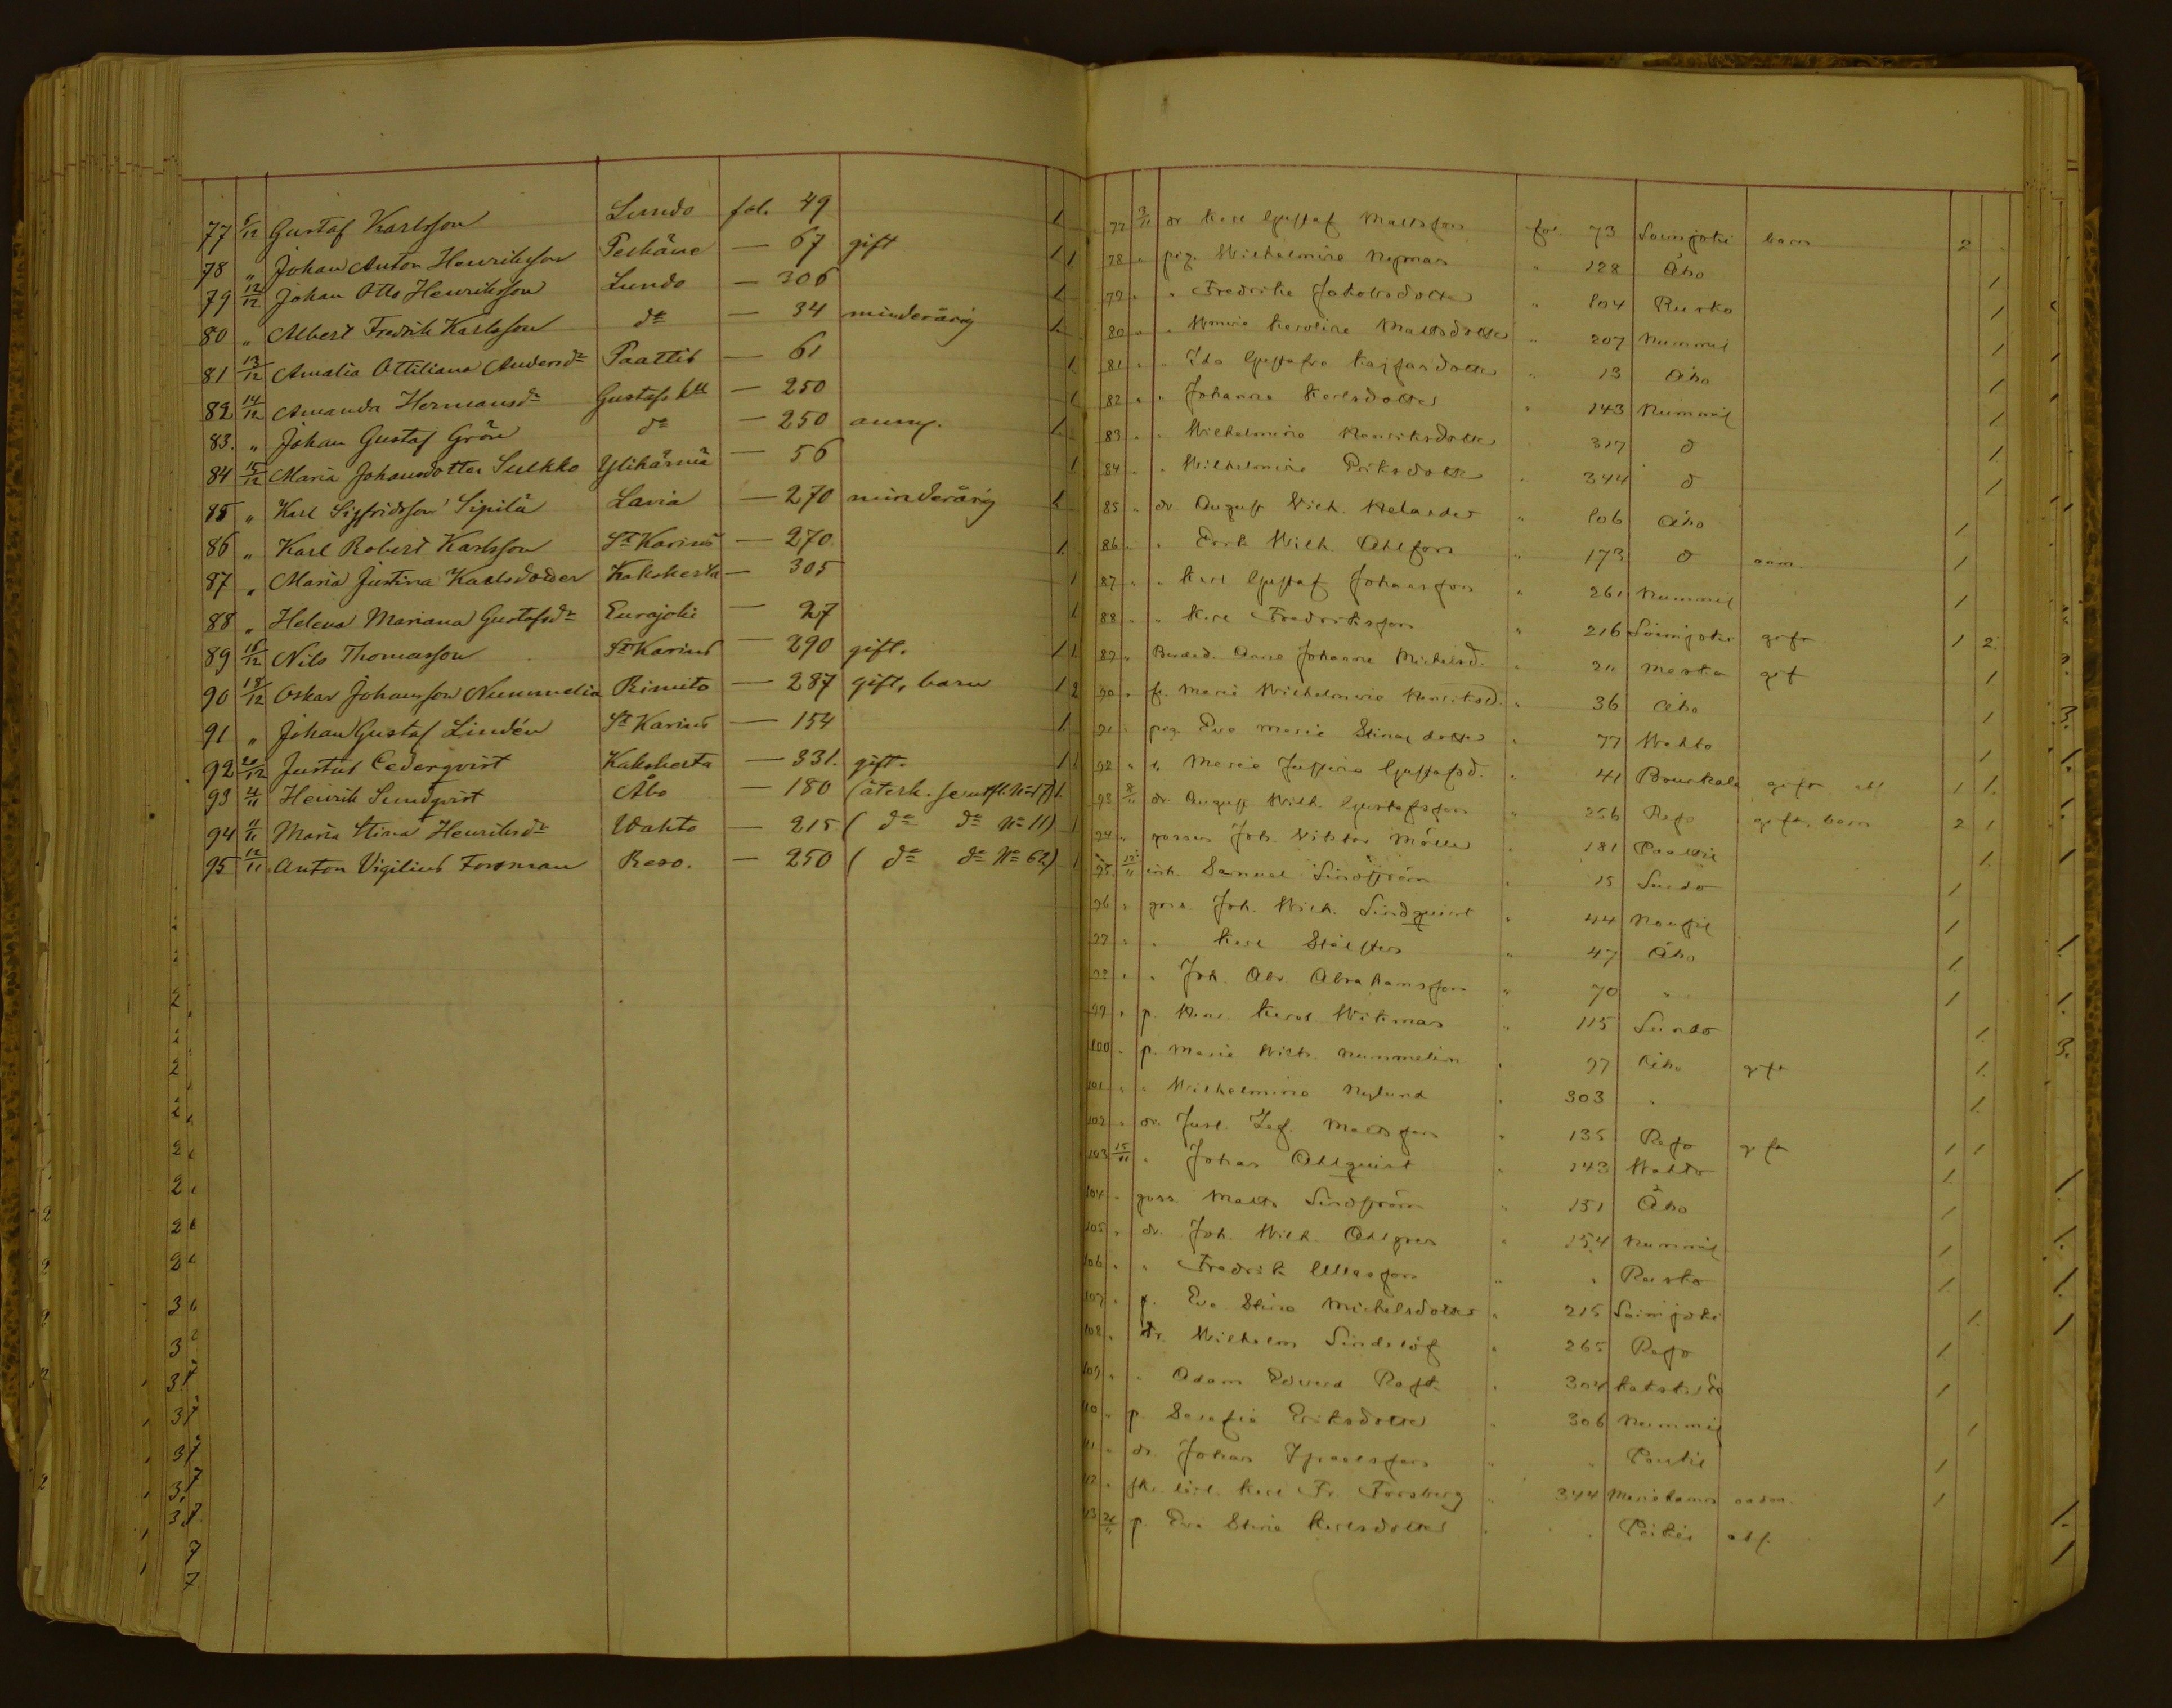 77 6/12 Gustaf Karlsson Lundo fol. 49 1
78 " Johan Anton Henriksson Peikäne — 67 gift 1 1
79 12/12 Johan Otto Henriksson Lundo — 306 1
80 " Albert Fredrik Karlsson d:o — 34 minderårig 1
81 13/12 Amalia Ottiliana Andersd:r Paattis — 61 1
82 14/12 Amanda Hermansd:r Gustafs — 250 1
83. " Johan Gustaf Grön d:o — 250 1
84 15/12 Maria Johansdotter Sulkko Ylihärmä — 56 1
85 " Karl Sigfridsson Sipilä Lavia — 270 minderårig 1
86 " Karl Robert Karlsson S:t Karins — 270 1
87 " Maria Justina Karlsdotter Kakskerta — 305 1
88 " Helena Mariana Gustafsd:r Eurajoki — 27 1
89 16/12 Nils Thomasson S:t Karins — 290 gift. 1 1
90 18/12 Oskar Johansson Nummelia Rimito — 287 gift, barn 1 2
91 " Johan Gustaf Lindén S:t Karins — 154 1
92 20/12 Justus Cederqvist Kakskerta — 331. gift. 1 1
93 4/11 Henrik Sundqvist Åbo — 180 (återk. se utfl. N:o 17) 1
94 11/11 Maria Stina Henriksd:r Wahto — 215 ( d:o d:o N:o 11) 1
95 12/11 Anton Vigilius Forsman Reso. — 250 ( d:o d:o N:o 62) 1
77 3/11 dr Karl Gustaf Mattsson fol. 73 Loimijoki barn 2
78 " pig. Wilhelmina Nyman " 128 Åbo 1
79 " " Fredrika Jakobsdotter " 104 Rusko 1
80 " " Karolina Mattsdotter " 207 Nummis 1
81 " " Ida Gustafva Kajsasdotter " 13 Åbo 1
82 " " Johanna Karlsdotter " 143 Nummis 1
83 " " Wilhelmina Henriksdotter " 317 d 1
84 " " Wilhelmina Eriksdotter " 344 d 1
85 " dr. August Wilh. Helander " 106 Åbo 1
86 " " Fredr. Wilh. Ahlfors " 173 d 1
87 " " Karl Gustaf Johansson " 261 Nummis 1
88 " " Karl Fredriksson " 216 Loimijoki gift 1 2
89 " Anna Johanna Michelsd. " Maska gift 1
90 " Maria Wilhelmina Henriksd. " 36 Åbo 1
91 " pig. Eva Maria Stinasdotter " 77 Wahto 1
92 " Maria Justina Gustafsd. " 41 gift 1 1
93 8/11 dr. August Wilh. Gustafsson " 256 Reso gift, barn 2 1
94 " gossen Joh. Viktor Möller " 181 Paattis 1
95 12/11 inh. Samuel Lindström " 15 Lundo 1
96 " goss. Joh. Wilh. Lindquist " 44 Nousis 1
97 " " Karl Stålsten " 47 Åbo 1
98 " " Joh. Abr. Abrahamsson " 70 " 1
99 " p. Karol. Wikman " 115 Lundo 1
100 " p. Maria Wilh. Nummelin " 97 Åbo gift 1
101 " " Wilhelmina Nylund " 303 " 1
102 " dr. Mattsson " 135 Reso gift 1 1
103 15/11 " Johan Ahlquist " 143 Wahto 1
104 " goss. Matts Lindström " 151 Åbo 1
105 " dr. Joh. Wilh. Ahlgren " 154 Nummis 1
106 " " Fredrik " " Rusko 1
107 " p. Eva Stina Michelsdotter " 215 Loimijoki 1
108 " dr. Wilhelm Lindelöf " 265 Reso 1
109 " " Adam Edvard " 304 Kakskerta 1
110 " p. Serafia Eriksdotter " 306 Nummis 1
111 " dr. Johan Israelsson " " 1
112 " Karl Fr. Forsberg " 344 Mariehamn 1
113 p. Eva Stina Karlsdotter " " Pikis